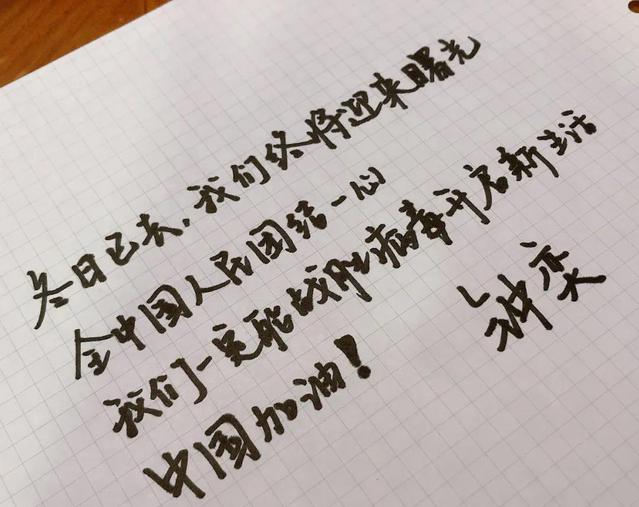 冬日已去，我们终将迎来曙光
全中国人民团结一心
我们一定能战胜病毒开启新生活
中国加油！
钟奕